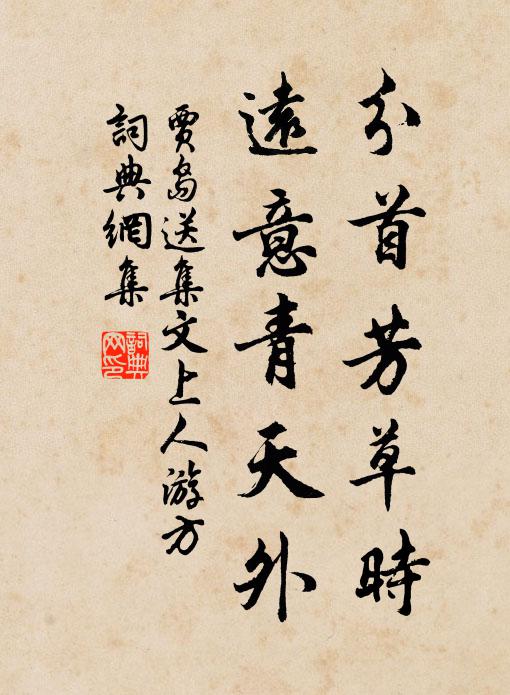 分首芳草時
遠意青天外
賈島送集文上人游方
詞典網集
詞典
网印